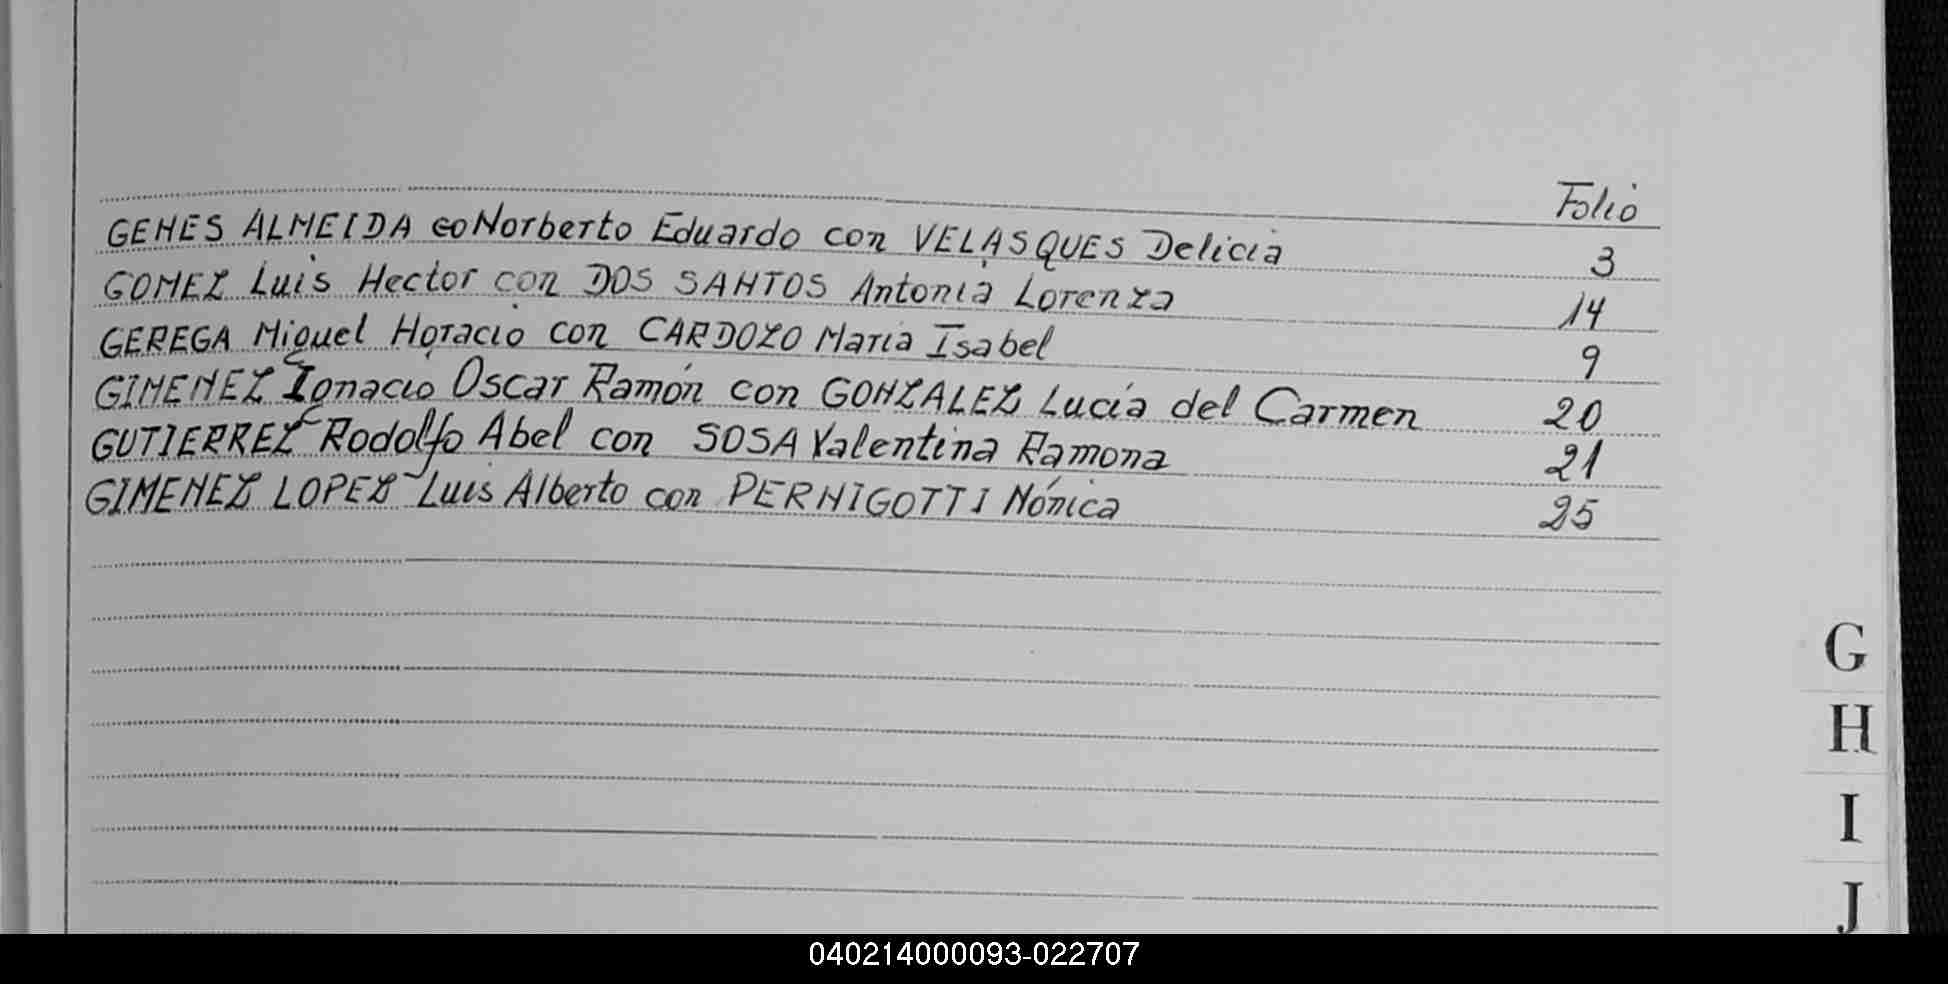 Folio
GENES ALMEIDA co Norberto Eduardo con VELASQUES Delicia 3
GOMEZ Luis Hector con DOS SANTOS Antonia Lorenza 14
GEREGA Miguel Horacio con CARDOZO Maria Isabel 9
GIMENEZ Ignacio Oscar Ramón con GONZALEZ Lucía del Carmen 20
GUTIERREZ Rodolfo Abel con SOSA Valentina Ramona 21
GIMENEZ LOPEZ Luis Alberto con PERNIGOTTI Mónica 25
G
H
I
J
040214000093-022707